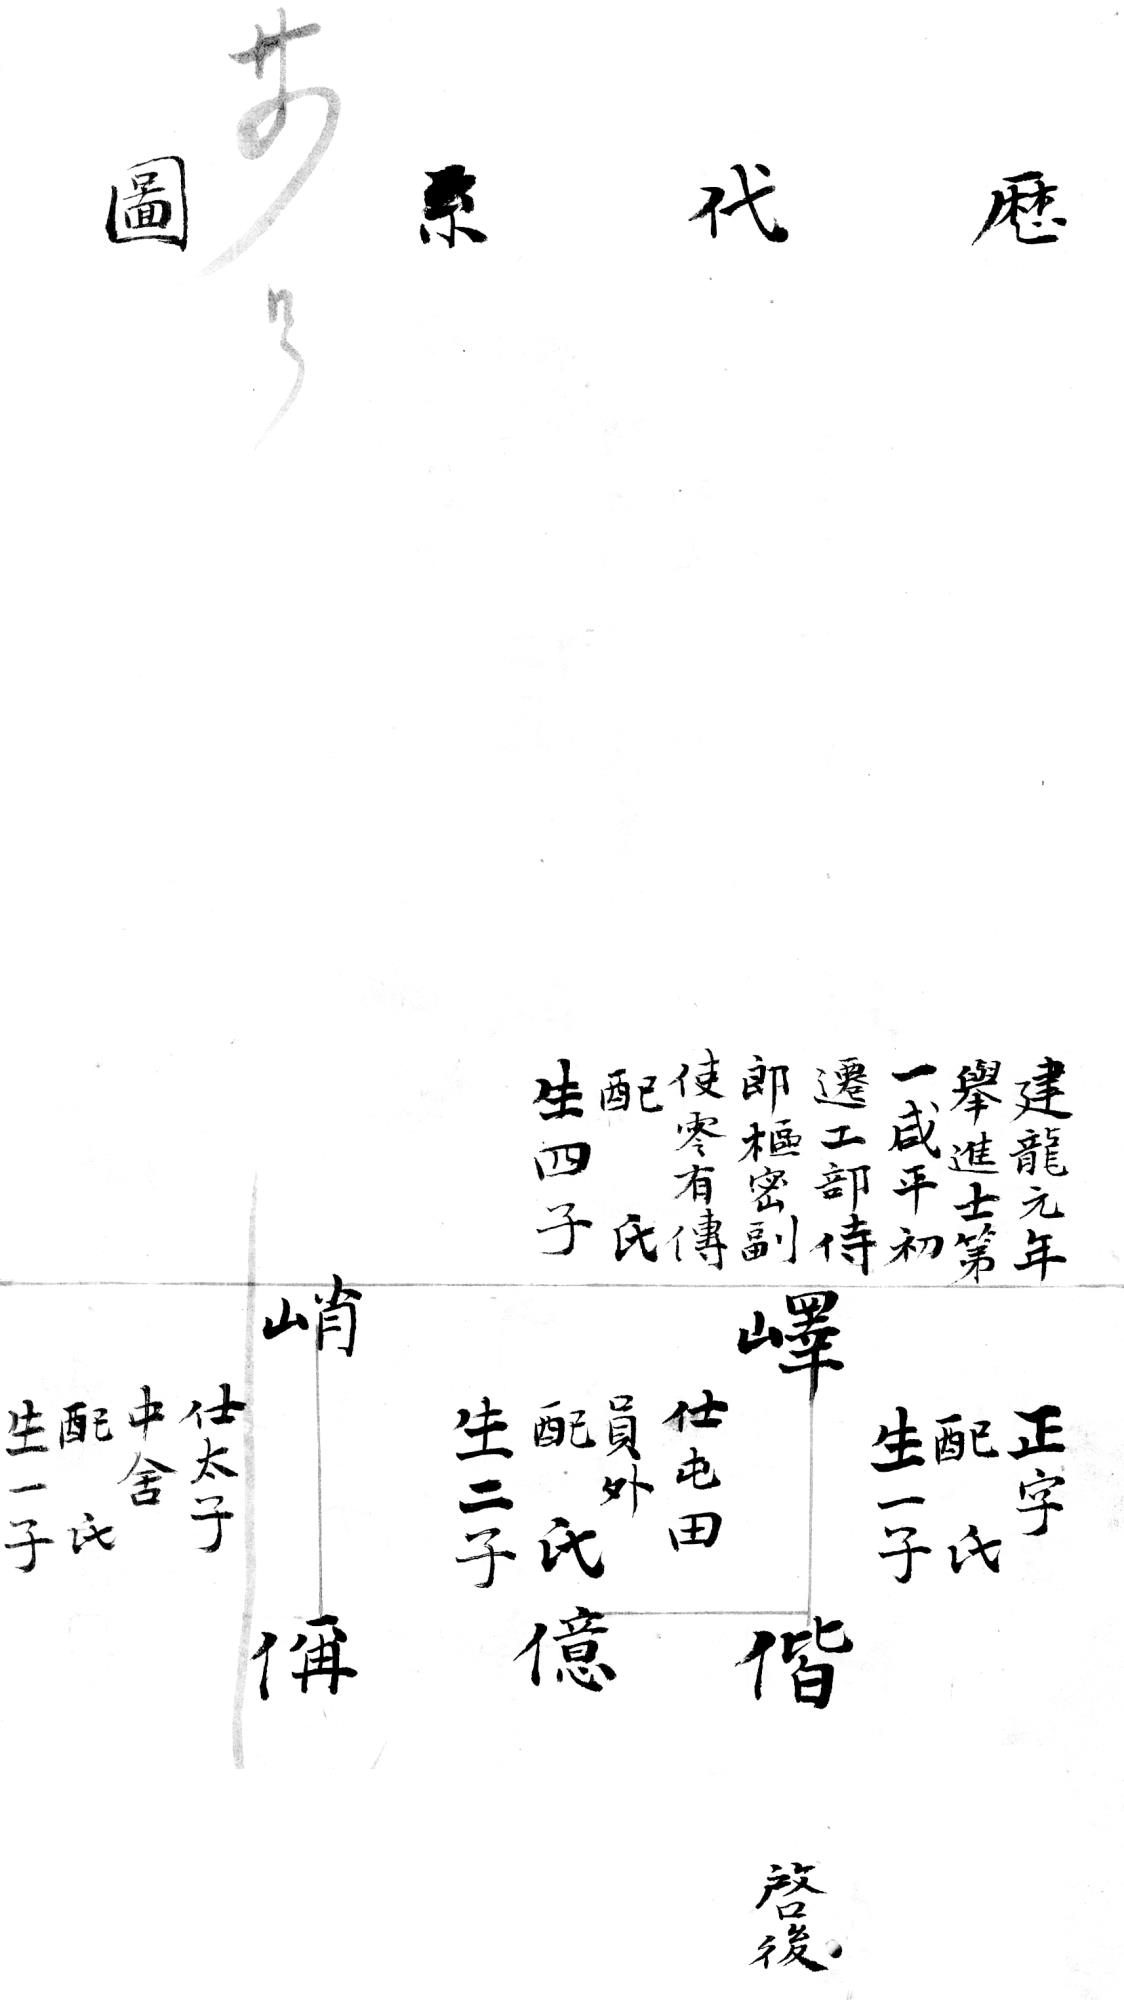 歷代系圖
建龍元年
舉進士第
一咸平初
遷工部侍
郎樞密副
使零有傳
配 氏
生四子
嶧
峭
正字
配 氏
生一子
仕屯田
員外
配 氏
生二子
仕太子
中舍
配 氏
生一子
偕
億
偁
啓後